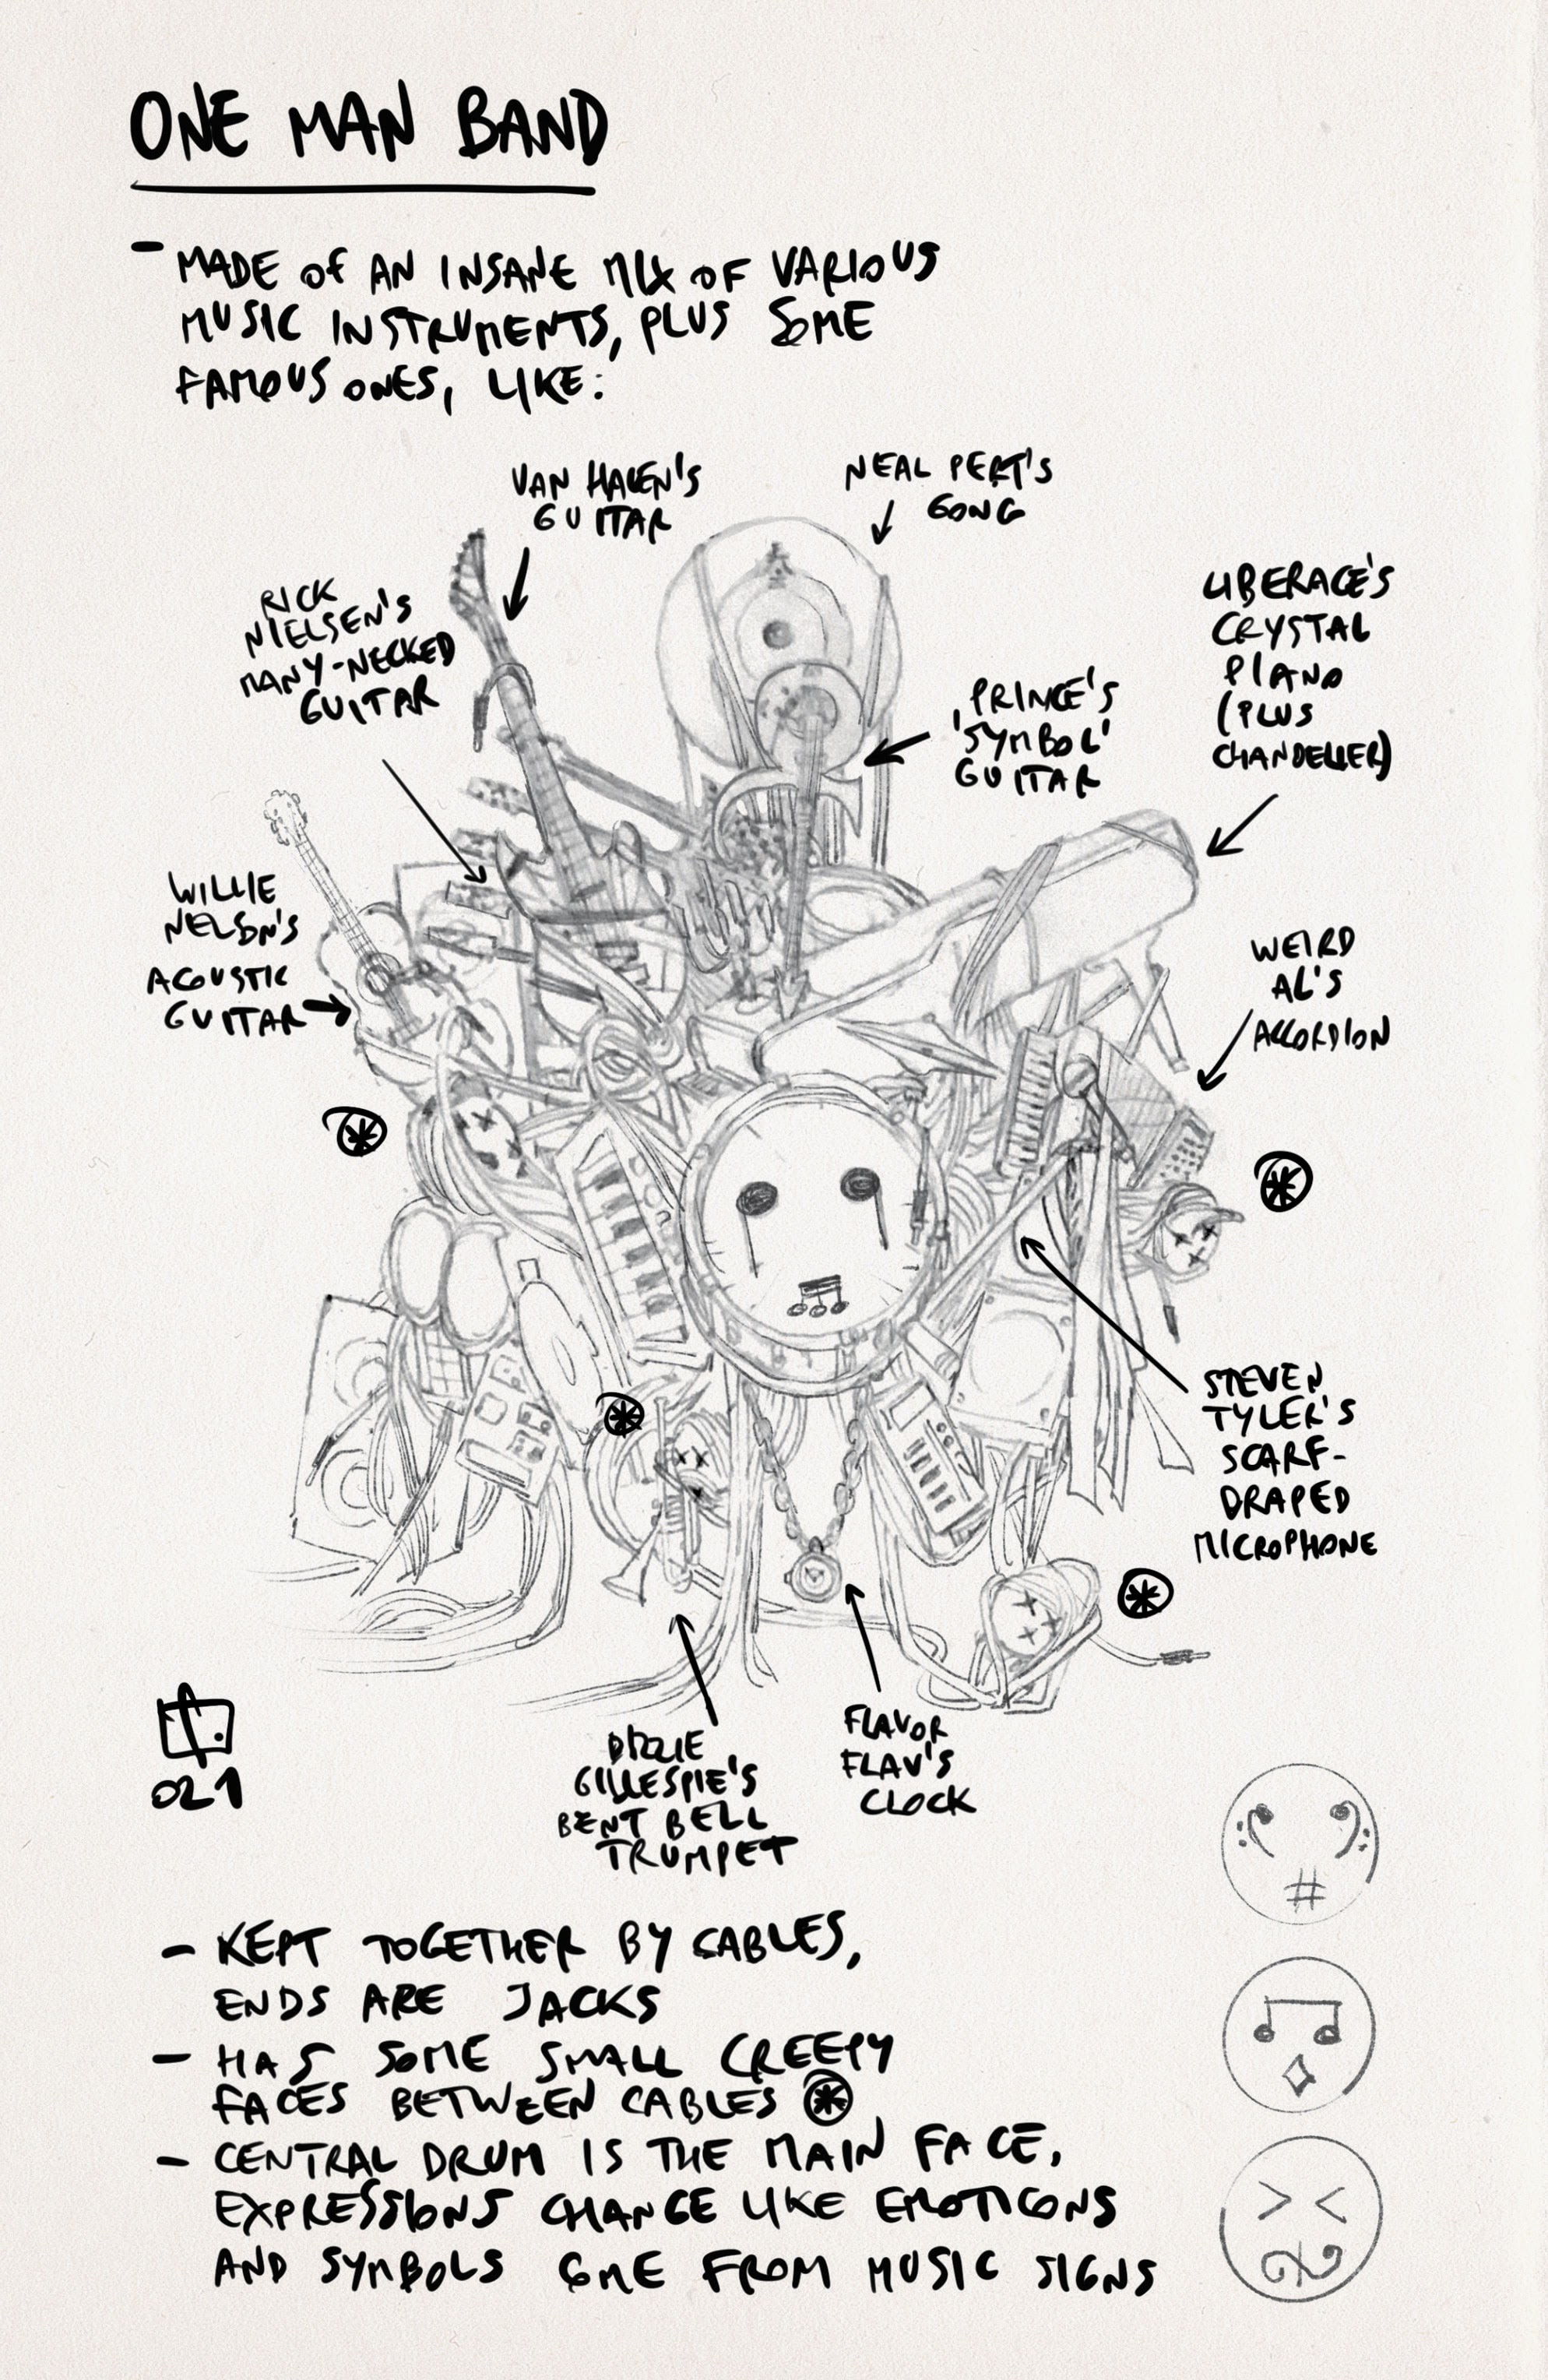 ONE MAN BAND
- MADE OF AN INSANE MIX OF VARIOUS
MUSIC INSTRUMENTS, PLUS SOME
FAMOUS ONES, LIKE:
VAN HALEN'S
GUITAR
NEAL PERT'S
GONG
RICK
NIELSEN'S
MANY-NECKED
GUITAR
LIBERACE'S
CRYSTAL
PIANO
(PLUS
CHANDELIER)
PRINCE'S
'SYMBOL'
GUITAR
WILLIE
NELSON'S
ACOUSTIC
GUITAR
WEIRD
AL'S
ACCORDION
STEVEN
TYLER'S
SCARF-
DRAPED
MICROPHONE
DIZZIE
GILLESPIE'S
BENT BELL
TRUMPET
FLAVOR
FLAV'S
CLOCK
021
- KEPT TOGETHER BY CABLES,
ENDS ARE JACKS
- HAS SOME SMALL CREEPY
FACES BETWEEN CABLES
- CENTRAL DRUM IS THE MAIN FACE,
EXPRESSIONS CHANGE LIKE EMOTICONS
AND SYMBOLS COME FROM MUSIC SIGNS